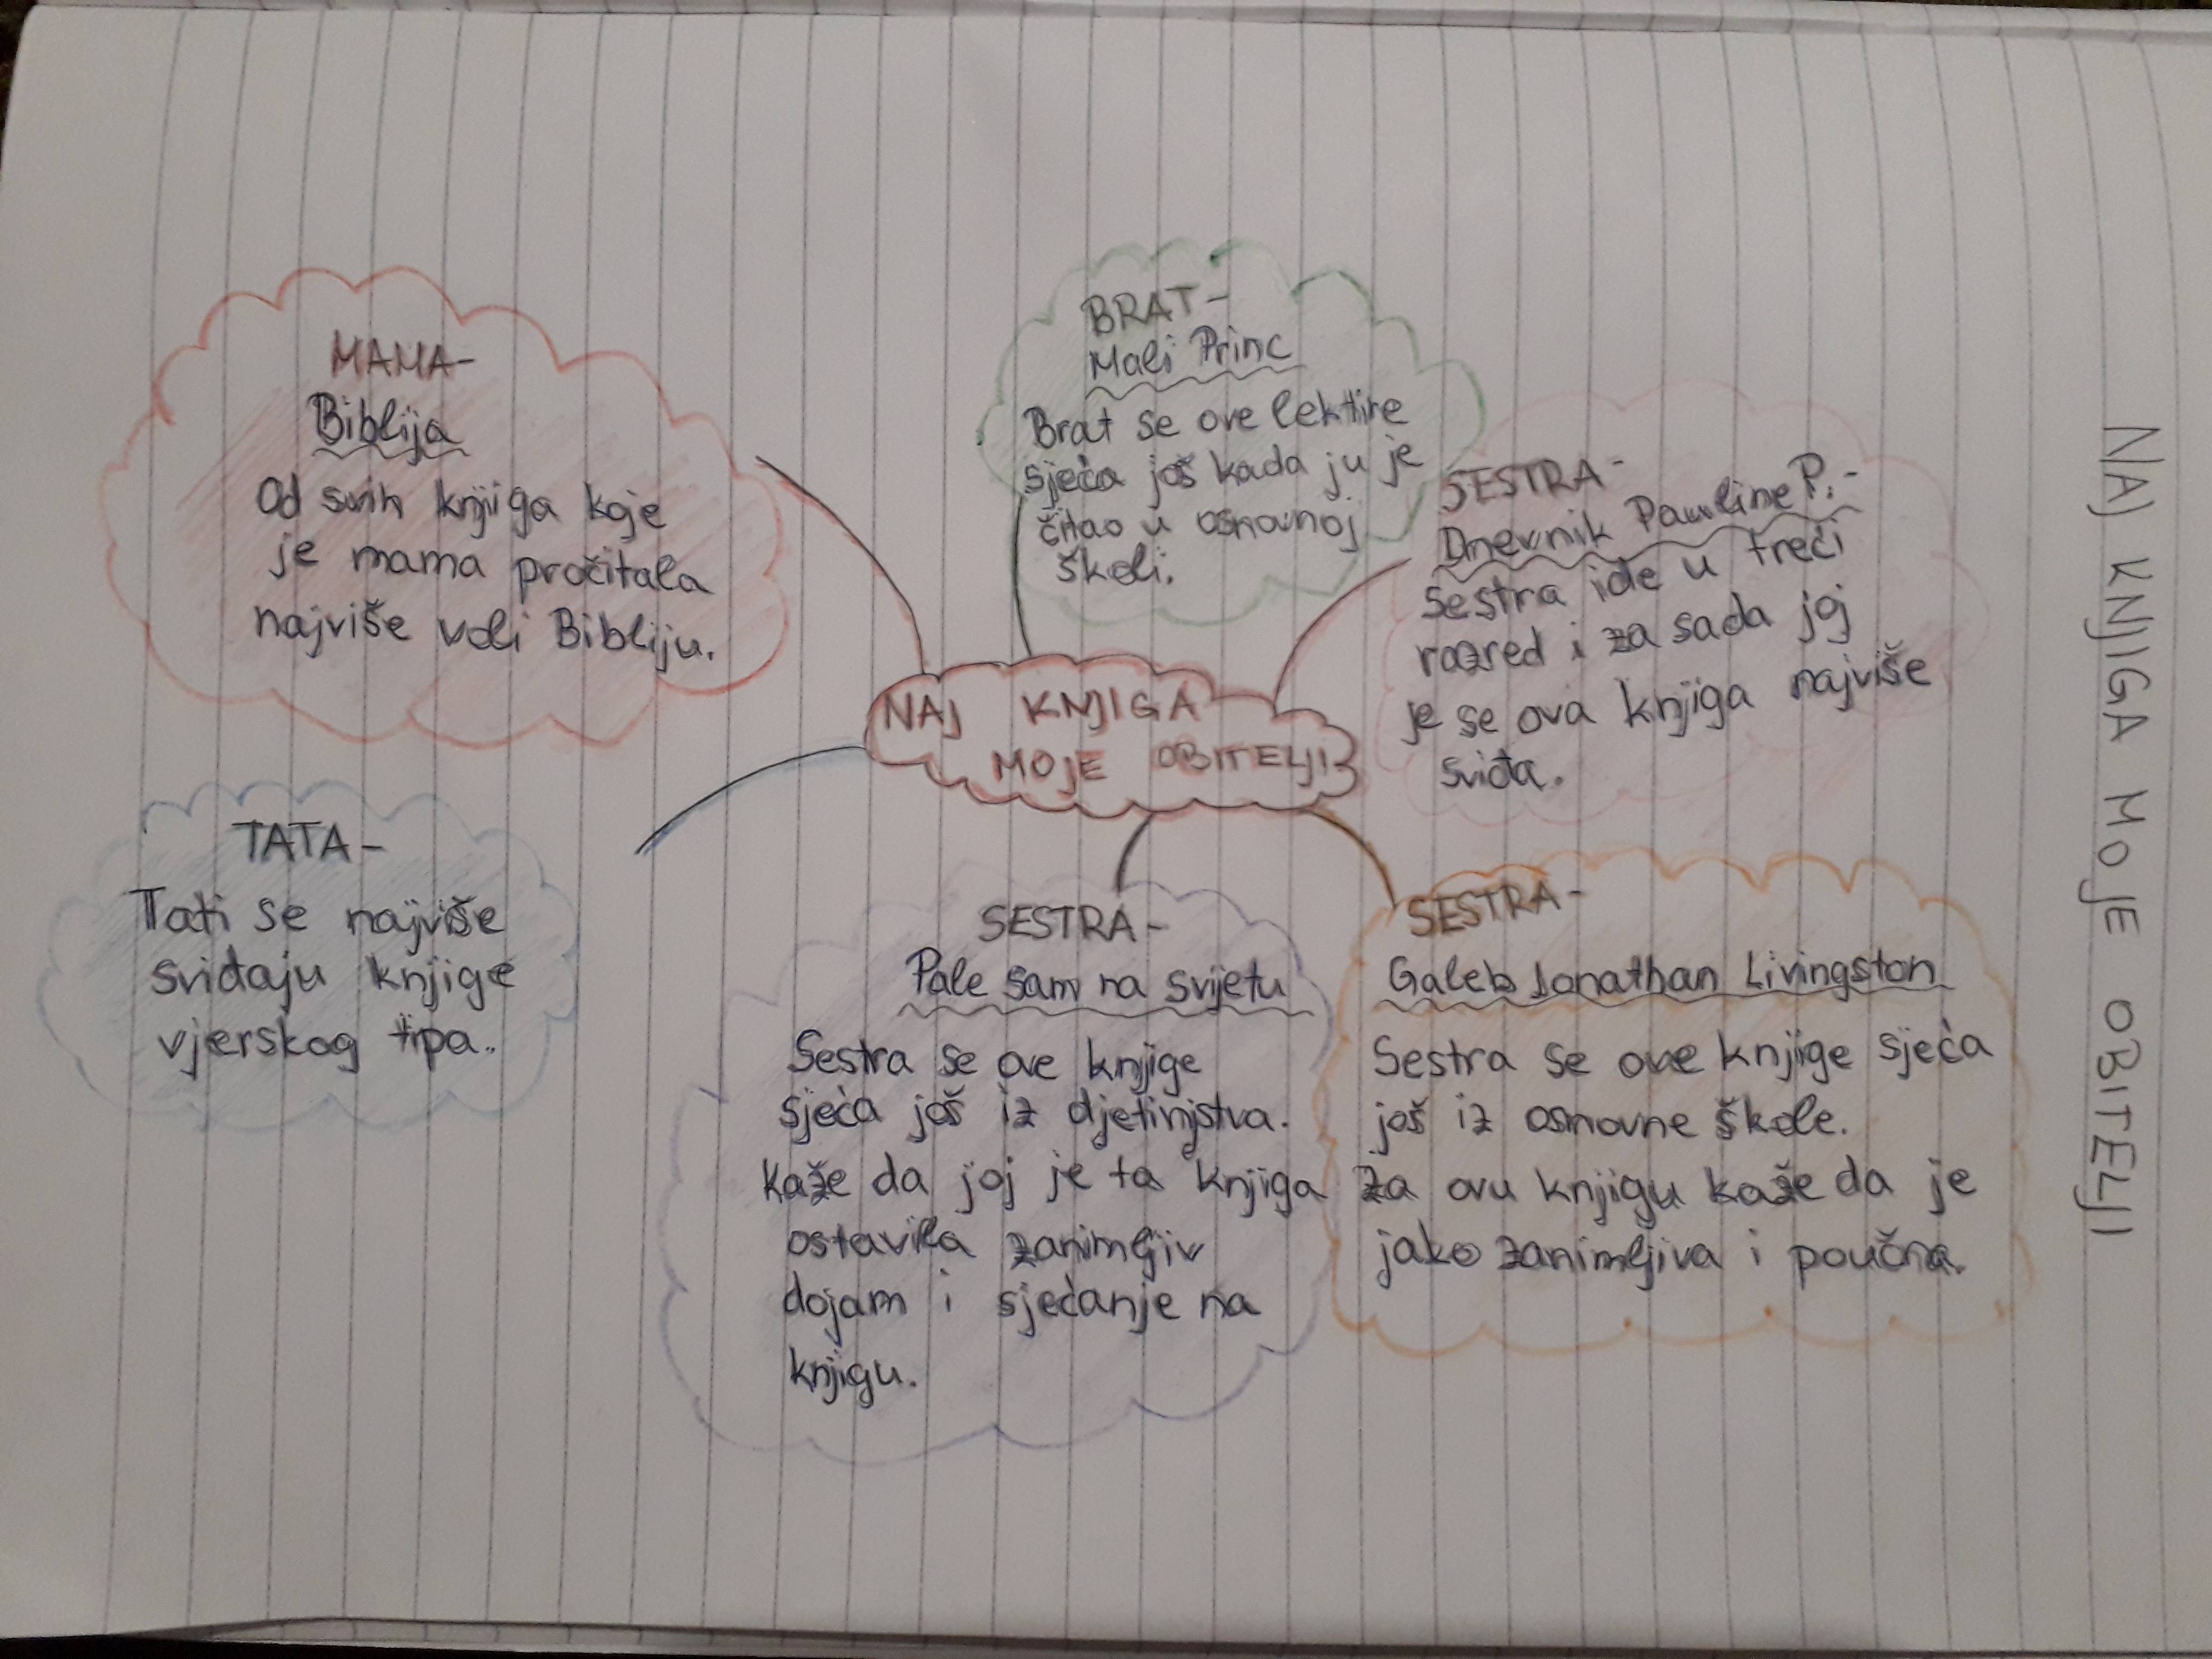 NAJ KNJIGA MOJE OBITELJI
NAJ KNJIGA
MOJE OBITELJI
MAMA-
Biblija
Od svih knjiga koje
je mama pročitala
najviše voli Bibliju.
BRAT-
Mali Princ
Brat se ove lektire
sjeća još kada ju je
čitao u osnovnoj
školi.
SESTRA-
Dnevnik Pauline P.-
Sestra ide u treći
razred i za sada joj
je se ova knjiga najviše
sviđa.
TATA-
Tati se najviše
sviđaju knjige
vjerskog tipa.
SESTRA-
Pale sam na svijetu
Sestra se ove knjige
sjeća još iz djetinjstva.
Kaže da joj je ta knjiga
ostavila zanimljiv
dojam i sjećanje na
knjigu.
SESTRA-
Galeb Jonathan Livingston
Sestra se ove knjige sjeća
još iz osnovne škole.
Za ovu knjigu kaže da je
jako zanimljiva i poučna.